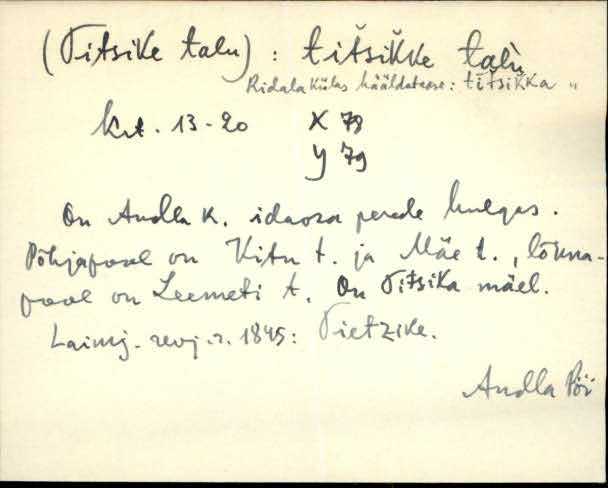 (Titsike talu) : titšikke talu
Ridala külas hääldatakse: titsikka "
Krt. 13-20 X 78
Y 79
On Andla k. idaosa perede hulgas.
Põhjapool on Kitu t. ja Mäe t., lõuna-
pool on Leemeti t. On Titsika mäel.
Laimj. revj. r. 1845: Tietzike.
Andla Pöi